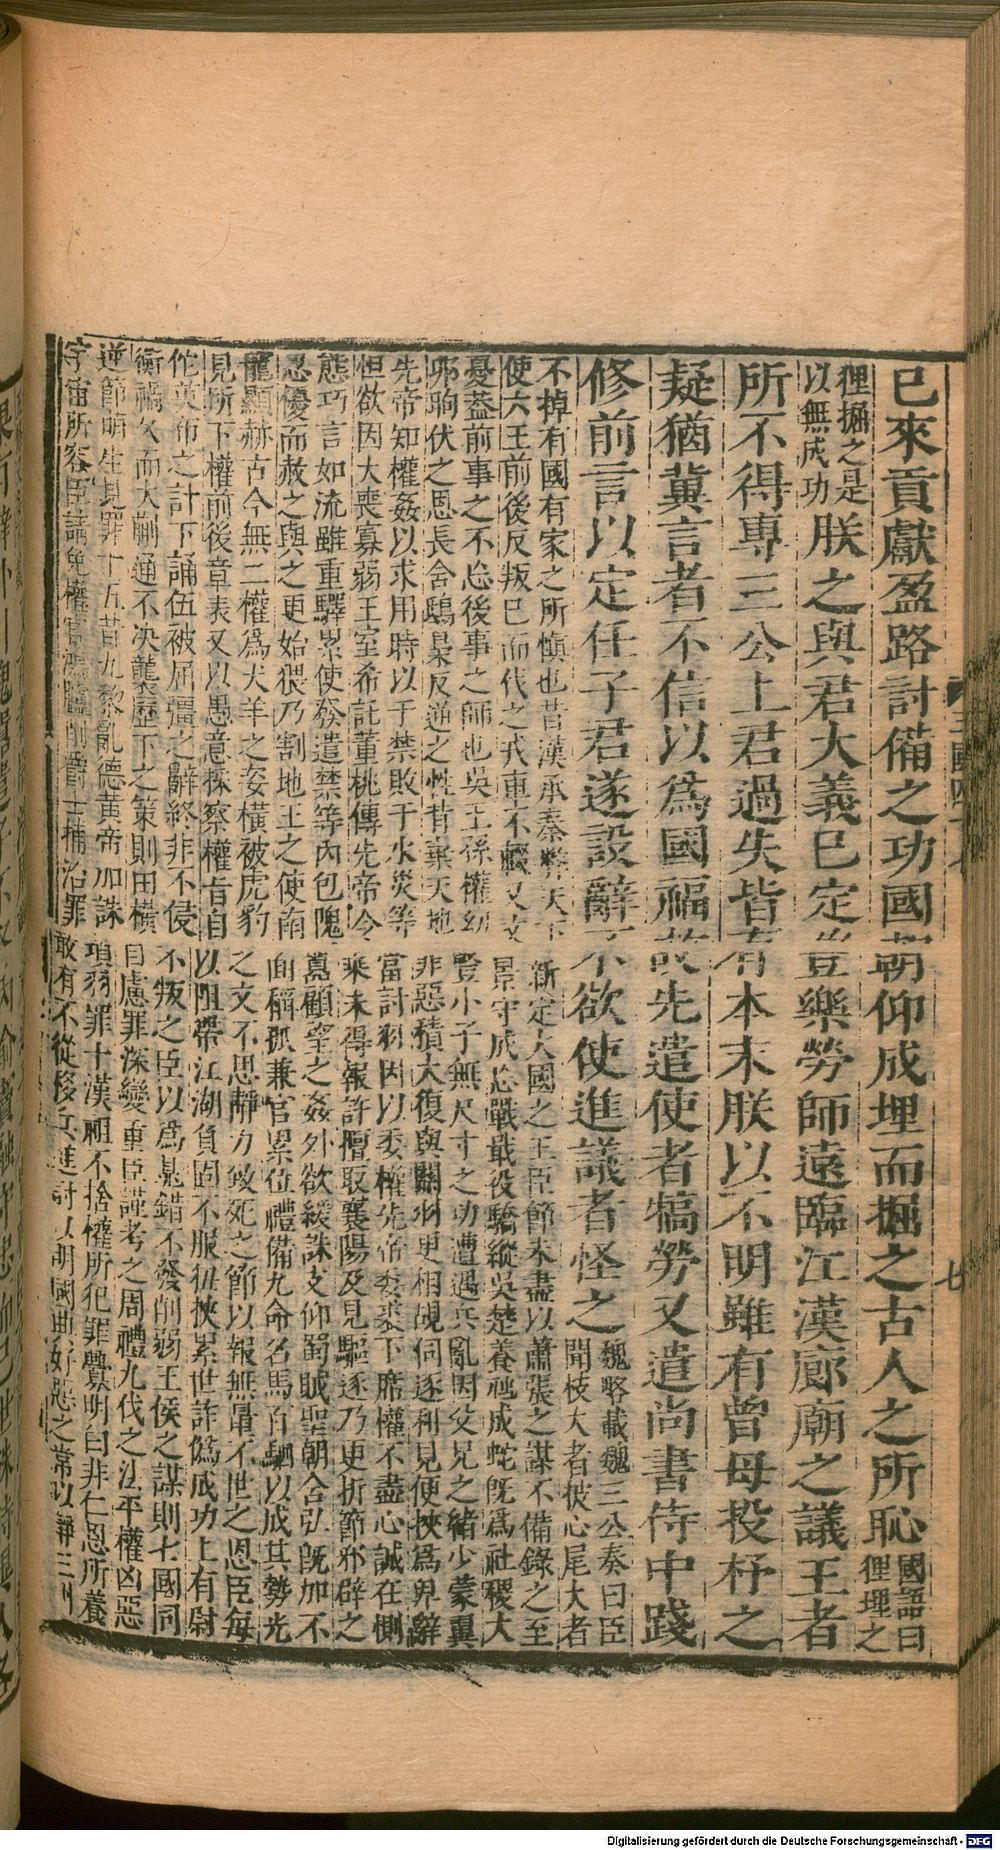 已來貢獻盈路討備之功國朝仰成埋而掘之古人之所恥
國語曰
狸埋之
狸掘之是
以無成功
朕之與君大義已定豈樂勞師遠臨江漢廊廟之議王者
所不得專三公上君過失皆有本末朕以不明雖有曾母投杼之
疑猶冀言者不信以爲國福故先遣使者犒勞又遣尚書侍中踐
修前言以定任子君遂設辭不欲使進議者怪之
魏略載魏三公奏曰臣
聞枝大者披心尾大者
不掉有國有家之所慎也昔漢承秦弊天下新定大國之王臣節未盡以蕭張之謀不備錄之至
使六王前後反叛巳而代之戎車不輟又文景守成忘戰戢役驕縱吳楚養虺成蛇旣爲社稷大
憂葢前事之不忘後事之師也吳王孫權幼豎小子無尺寸之功遭遇兵亂因父兄之緒少蒙翼
卵昫伏之恩長含鴟梟反逆之性背棄天地非惡積大復與關羽更相覘伺逐利見便挾爲卑辭
先帝知權姦以求用時以于禁敗于水災等當討羽因以委權先帝委裘下席權不盡心誠在惻
怛欲因大喪寡弱王室希託董桃傳先帝令乘未得報許擅取襄陽及見驅逐乃更折節邪辟之
態巧言如流雖重驛累使發遣禁等內包隗囂顧望之姦外欲緩誅支仰蜀賊聖朝含弘旣加不
忍優而赦之與之更始猥乃割地王之使南面稱孤兼官累位禮備九命名馬百駟以成其勢光
寵顯赫古今無二權爲犬羊之姿橫被虎豹之文不思靜力致死之節以報無量不世之恩臣每
見所下權前後章表又以愚意採察權旨自以阻帶江湖負固不服狃㤦累世詐僞成功上有尉
佗英布之計下誦伍被屈彊之辭終非不侵不叛之臣以爲鼂錯不發削弱王侯之謀則七國同
衡禍久而大蒯通不决襲歷下之策則田橫自慮罪深變重臣謹考之周禮九伐之法平權凶惡
逆節萌生見罪十五昔九黎亂德黃帝加誅項羽罪十漢祖不捨權所犯罪釁明白非仁恩所養
宇宙所容臣請免權官鴻臚削爵土捕治罪敢有不從移兵進討以明國典好惡之常以靜三州
七
Digitalisierung gefördert durch die Deutsche Forschungsgemeinschaft - DFG